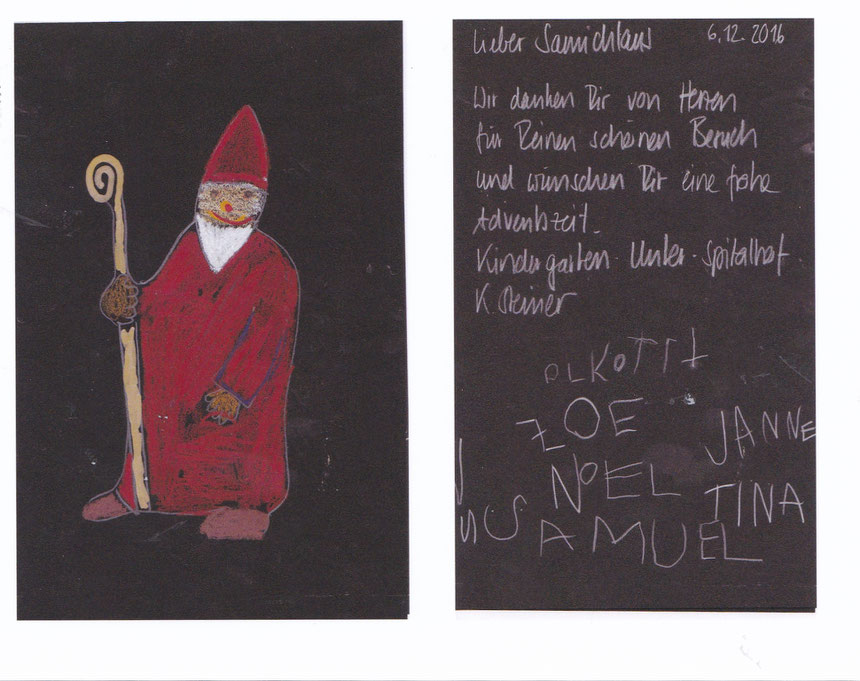 Lieber Samichlaus 6.12.2016
Wir danken Dir von Herzen
für Deinen schönen Besuch
und wünschen Dir eine frohe
Adventszeit.
Kindergarten Unter-Spitalhof
K. Steiner
ZOE
JANNE
NOEL
TINA
SAMUEL